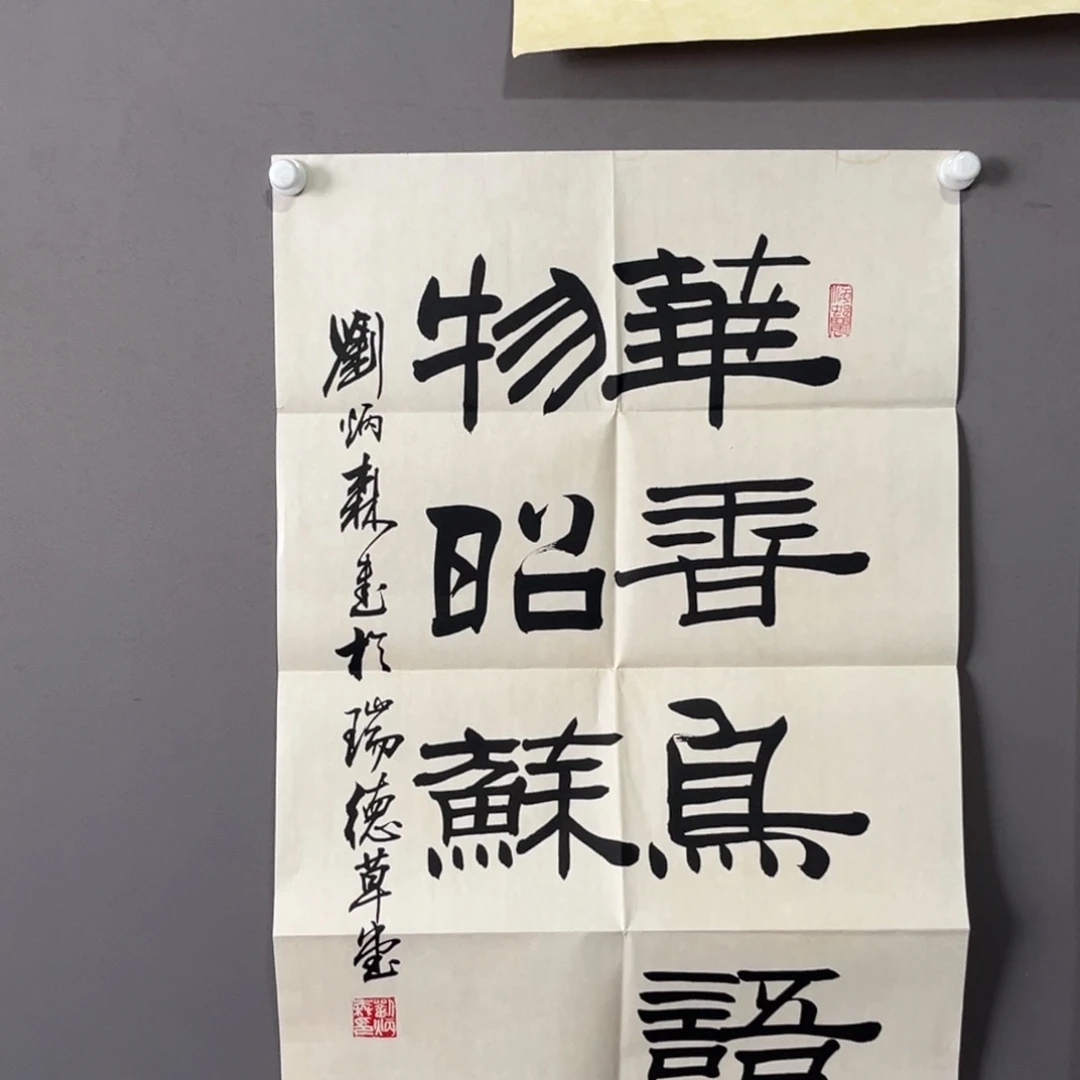 華香鳥語
物昭蘇
劉炳森書於瑞德草堂
劉炳森印